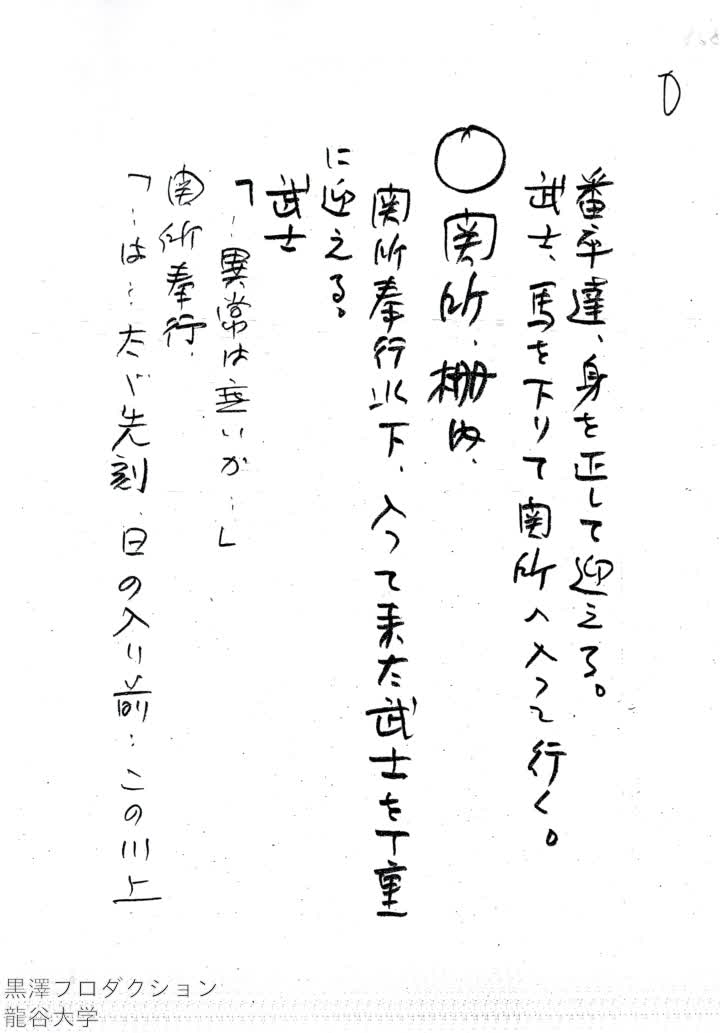 番卒達、身を正して迎える。
武士、馬を下りて関所へ入って行く。
○関所・柵内
関所奉行以下、入って来た武士を丁重
に迎える。
武士
「…異常は無いか…」
関所奉行
「…は…たゞ先刻、日の入り前…この川上
黒澤プロダクション
龍谷大学